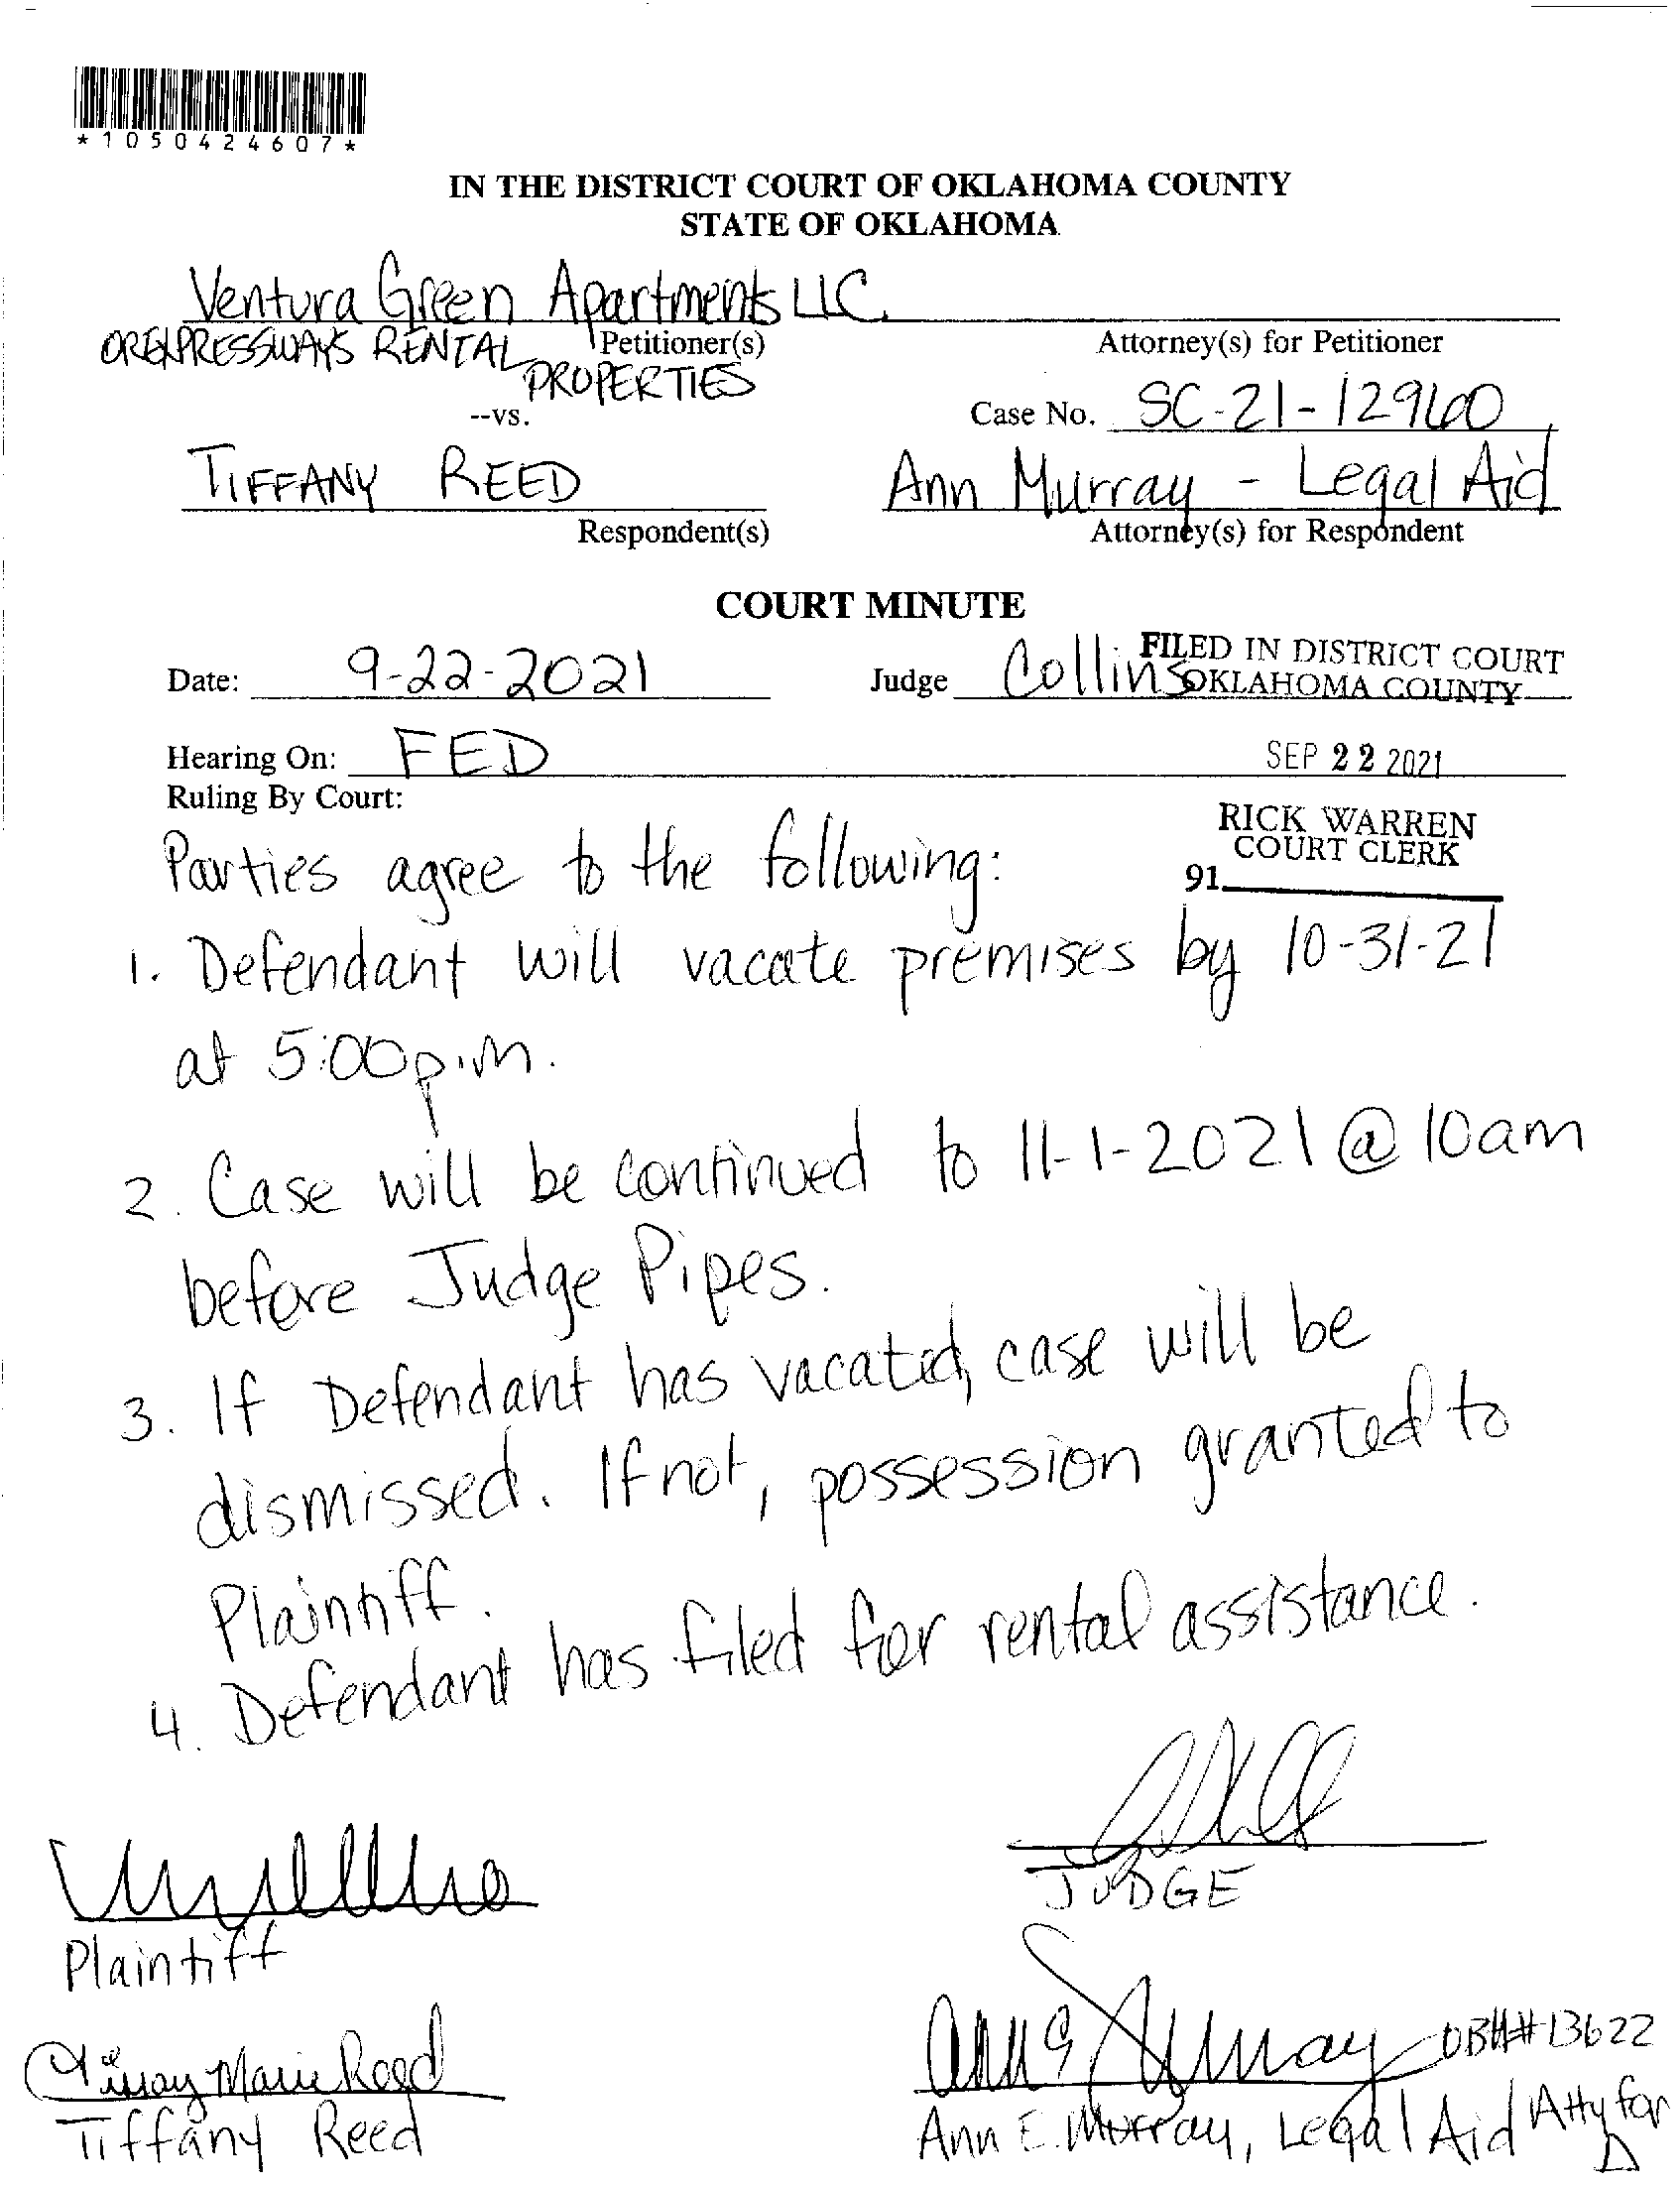 *1050424607*
IN THE DISTRICT COURT OF OKLAHOMA COUNTY
STATE OF OKLAHOMA
Ventura Green Apartments LLC
RENTAL
PROPERTIES
Petitioner(s)
Attorney(s) for Petitioner
--vs.
Case No. SC-21-12960
TIFFANY REED
Respondent(s)
Ann Murray - Legal Aid
Attorney(s) for Respondent
COURT MINUTE
Date: 9-22-2021
Judge Collins
FILED IN DISTRICT COURT
OKLAHOMA COUNTY
Hearing On: FED
SEP 22 2021
Ruling By Court:
RICK WARREN
COURT CLERK
91
Parties agree to the following:
1. Defendant will vacate premises by 10-31-21
at 5:00p.m.
2. Case will be continued to 11-1-2021 @ 10am
before Judge Pipes.
3. If Defendant has vacated, case will be
dismissed. If not, possession granted to
Plaintiff.
4. Defendant has filed for rental assistance.
JUDGE
Plaintiff
Tiffany Marie Reed
Tiffany Reed
Ann E Murray OBA#13622
Ann E. Murray, Legal Aid Atty for
D